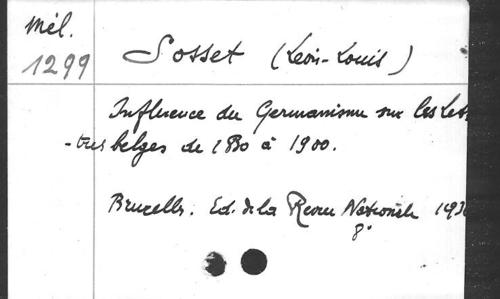 Mél.
1299
Sosset (Léon-Louis)
Influence du Germanisme sur les Let
-tres belges de 1830 à 1900.
Bruxelles. Ed. de la Revue Nationale 193
8°